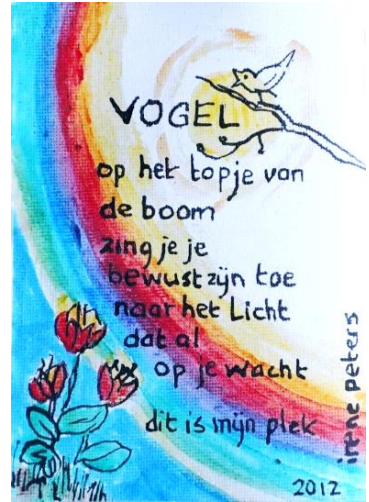 VOGEL
op het topje van
de boom
zing je je
bewustzijn toe
naar het Licht
dat al
op je wacht
dit is mijn plek
irene peters
2012